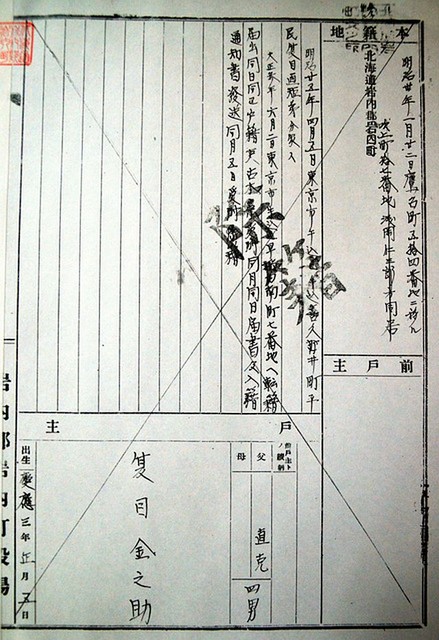 本籍地
北海道岩内郡岩内町
吹上町拾七番地 浅岡仁三郎方同居
明治廿年一月廿二日鷹台町五拾四番地ニ移ル
前戸主
明治廿五年四月五日東京市牛込 喜久井町平
民夏目直矩弟分家入
大正参年六月二日東京市牛込区早稲田南町七番地ヘ転籍
届出同日同区戸籍吏 受附同月同日届書及入籍
通知書發送同月五日受附除籍
除籍
戸主
前戸主トノ續柄
父 直克 四男
母
夏目金之助
出生 慶應三年 月五日
岩内郡岩内町役場